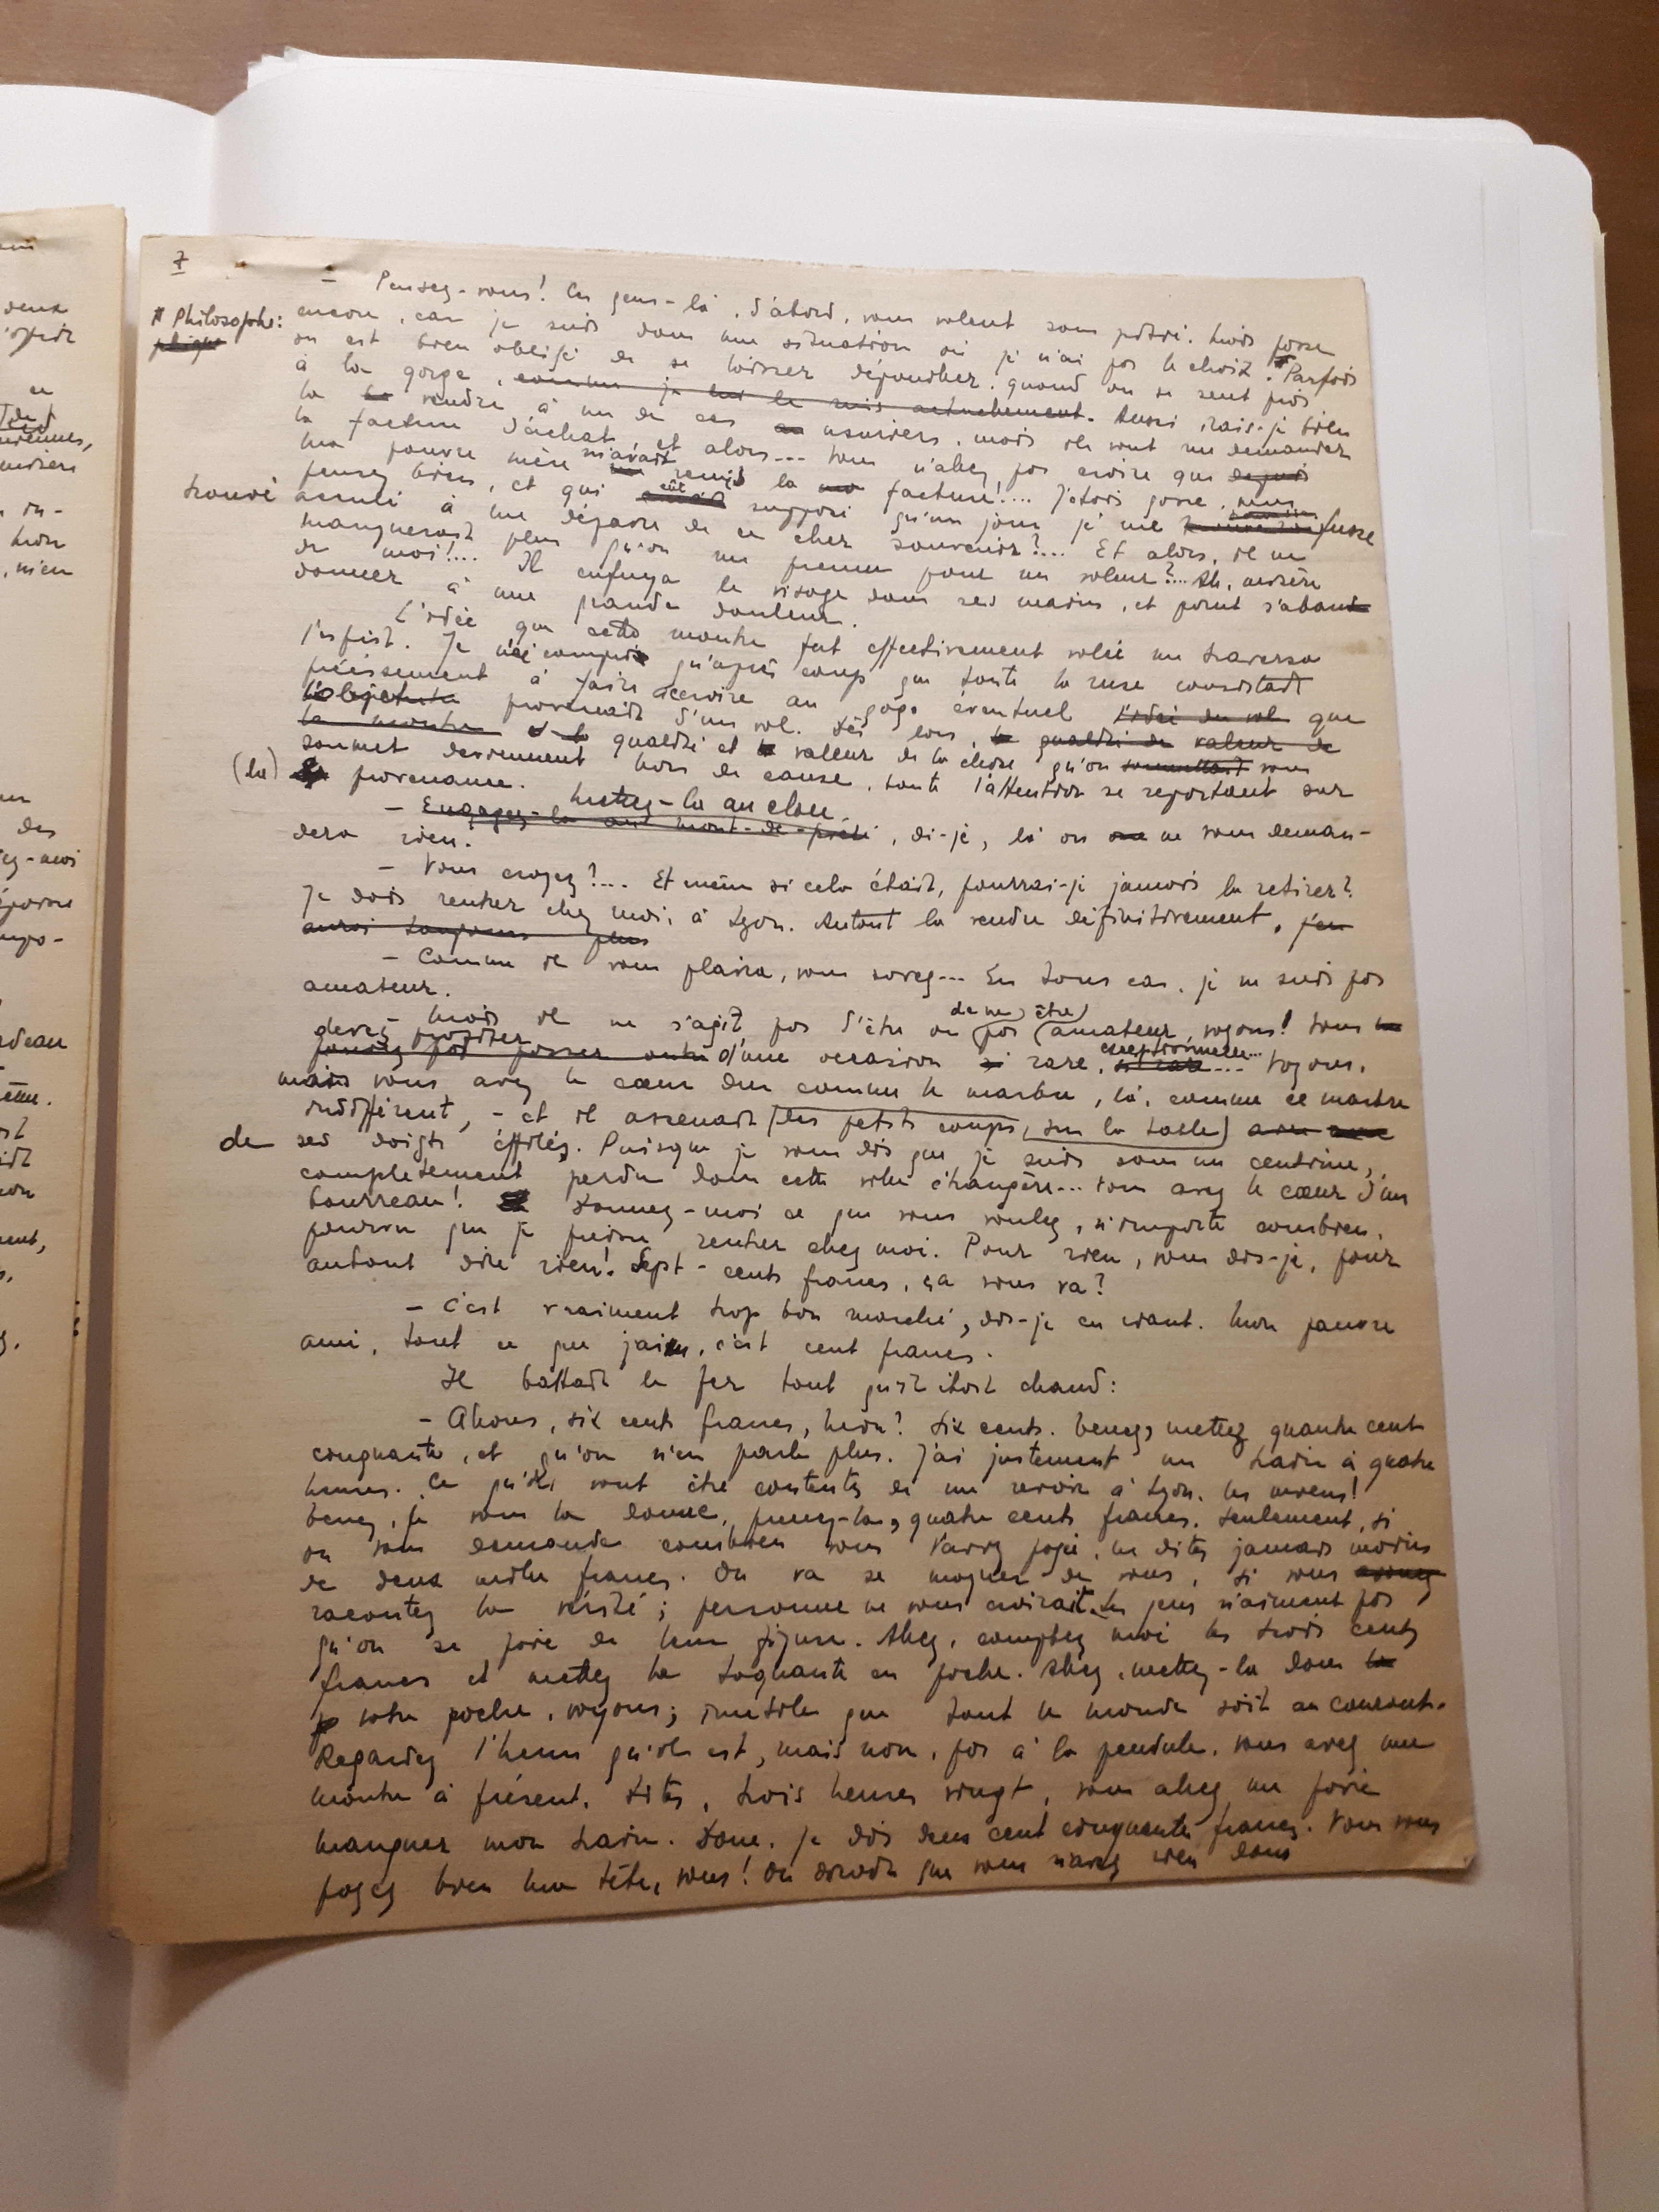 7
– Pensez-vous! Ces gens-là, d'abord, vous volent sans pitié. Mais passe
# Philosophe:
encore, car je suis dans une situation où je n'ai pas le choix. # Parfois
on est bien obligé de se laisser dépouiller quand on se sent pris
à la gorge, comme je le suis actuellement. Aussi irais-je bien
la vendre à un de ces usuriers, mais ils vont me demander
la facture d'achat, et alors... Vous n'allez pas croire que depuis
ma pauvre mère m'avait remis la facture!.... J'étais gosse,
pensez bien, et qui eût supposé qu'un jour je me fusse
trouvé acculé à me défaire de ce cher souvenir?... Et alors, il ne
manquerait plus qu'on me prenne pour un voleur?... Ah, misère
de moi!... Il enfouya le visage dans ses mains, et parut s'aban
donner à une grande douleur.
L'idée que cette montre fut effectivement volée me traversa
l'esprit. Je n'ai compris qu'après coup que toute la ruse consistait
précisément à faire accroire au gogo éventuel l'idée du vol que
l'objet provenait d'un vol. Dès lors, la qualité la valeur de
la montre et la qualité et la valeur de la chose qu'on soumettait vous
soumet deviennent hors de cause, toute l'attention se reportant sur
(la) provenance.
Mettez-la au clou
– Engagez-la au mont-de-piété, di-je, là on ne vous deman-
dera rien.
– Vous croyez?... Et même si cela était, pourrai-je jamais la retirer?
Je dois rentrer chez moi, à Lyon. Autant la vendre définitivement, j'en
aurai toujours plus
– Comme il vous plaira, vous savez... En tous cas, je ne suis pas
amateur.
– Mais il ne s'agit pas d'être ou de ne pas (être) amateur, voyons! Vous
devez profiter d'une occasion si rare, exceptionnelle... Voyons,
mais vous avez le cœur dur comme le marbre, là, comme ce marbre
indifférent, – et il assenait (des petits coups, sur la table)
de ses doigts éffilés. Puisque je vous dis que je suis sans un centime,
complètement perdu dans cette ville étrangère... Vous avez le cœur d'un
bourreau! Donnez-moi ce que vous voulez, n'importe combien,
pourvu que je puisse rentrer chez moi. Pour rien, vous dis-je, pour
autant dire rien! Sept-cents francs, ça vous va?
– C'est vraiment trop bon marché, dis-je en riant. Mon pauvre
ami, tout ce que j'ai, c'est cent francs.
Il battait le fer tout qu'il était chaud:
– Alions, six cents francs, hein? Six cents. Tenez, mettez quatre cent
cinquante, et qu'on n'en parle plus. J'ai justement un train à quatre
heures. Ce qu'ils vont être contents de me revoir à Lyon, les miens!
Tenez, je vous la donne, prenez-la, quatre cents francs. Seulement, si
on vous demande combien vous l'avez payé, ne dites jamais moins
de deux mille francs. On va se moquer de vous, si vous
racontez la vérité; personne ne vous croirait. Les gens n'aiment pas
qu'on se paie de leur figure. Allez, comptez moi les trois cents
francs et mettez la toquante en poche. Allez, mettez-la dans la
votre poche, voyons; inutile que tout le monde soit au courant.
Regardez l'heure qu'il est, mais non, pas à la pendule, vous avez une
montre à présent. Dites, trois heures vingt, vous allez me faire
manquer mon train. Donc, je dis deux cent cinquante francs. Vous vous
payez bien ma tête, vous! On dirait que vous n'avez rien dans